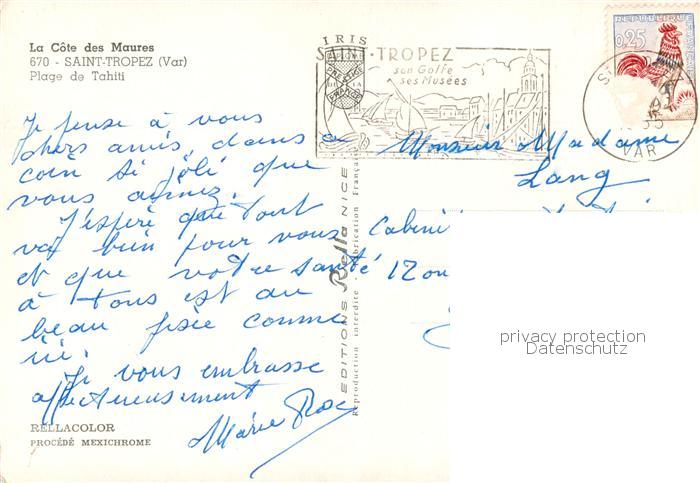 La Côte des Maures
670 - SAINT-TROPEZ (Var)
Plage de Tahiti
IRIS
SAINT-TROPEZ
son Golfe
ses Musées
PRESTIGE
DE LA
FRANCE
REPUBLIQUE FRANÇAISE
0,25
VAR
Je pense à vous
chers amis, dans ce
coin si joli que
vous aimez.
J'espère que tout
va bien pour vous
et que votre santé
à tous est au
beau fixe comme
ici.
Je vous embrasse
affectueusement
Marie Rose
Monsieur Madame
Lang
Cabini
12 ou
EDITIONS Rella NICE
Reproduction interdite - Fabrication Française
RELLACOLOR
PROCÉDÉ MEXICHROME
privacy protection
Datenschutz